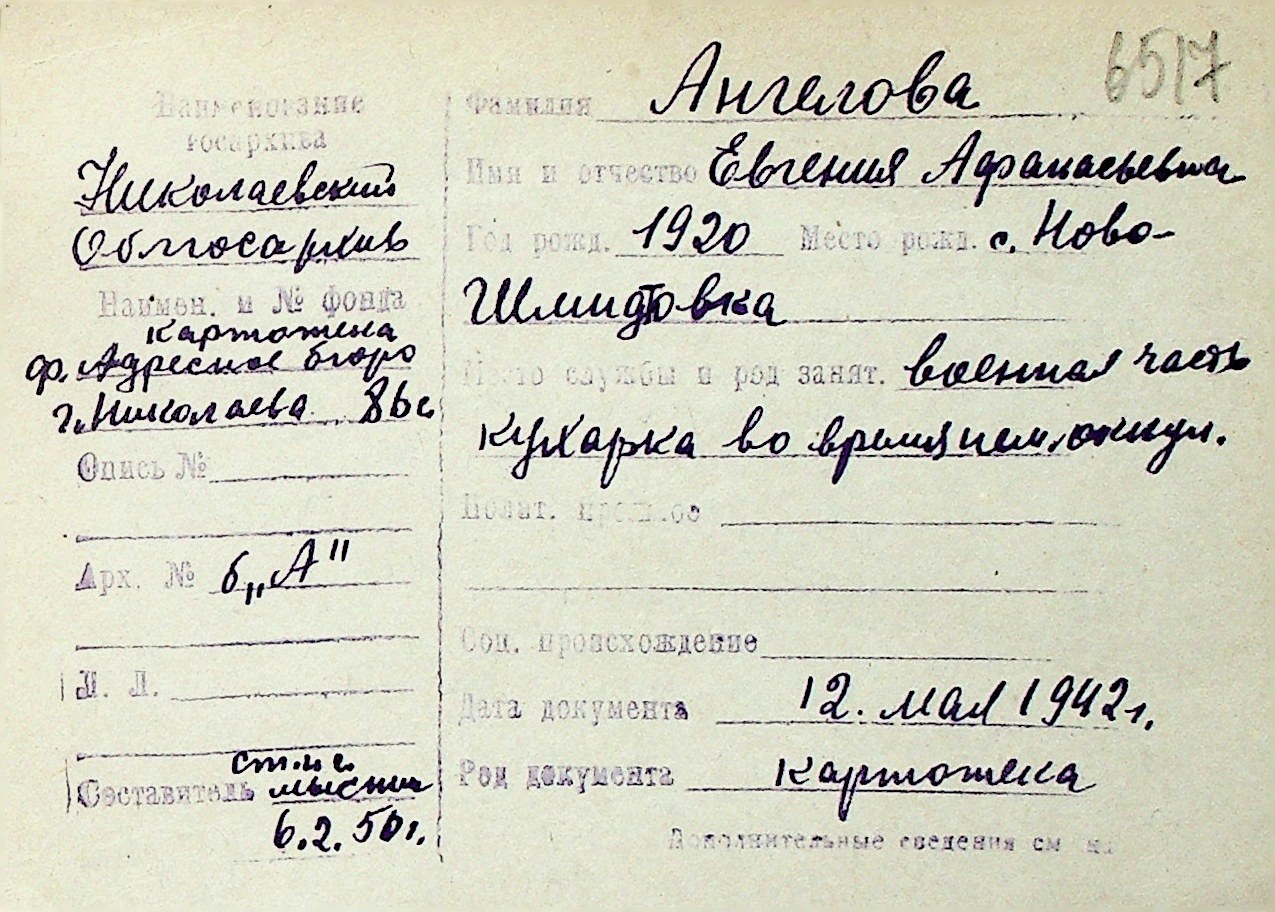 6517
Наименование
госархива
Николаевский
Облгосархив
Наимен. и № фонда
картотека
ф. Адресное бюро
г. Николаева
Опись №
Арх. № б „А"
Л. Л.
Составитель ст.н.с.
6.2.50 г.
Фамилия Ангелова
Имя и отчество Евгения Афанасьевна
Год рожд. 1920 Место рожд. с. Ново-
Шмидтовка
Место службы и род занят. военная часть
кухарка во время нем. оккуп.
Полит.
Соц. происхождение
Дата документа 12. мая 1942 г.
Род документа картотека
Дополнительные сведения см на